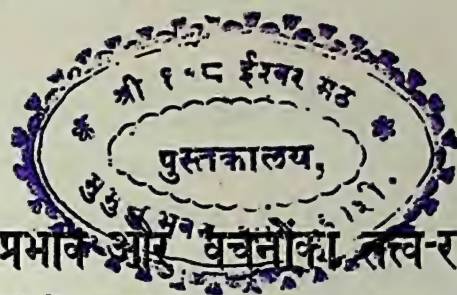 श्री १०८ ईश्वर मठ
पुस्तकालय,
मुमुक्षु भवन
प्रभाव और वचनोंका तत्त्व-र